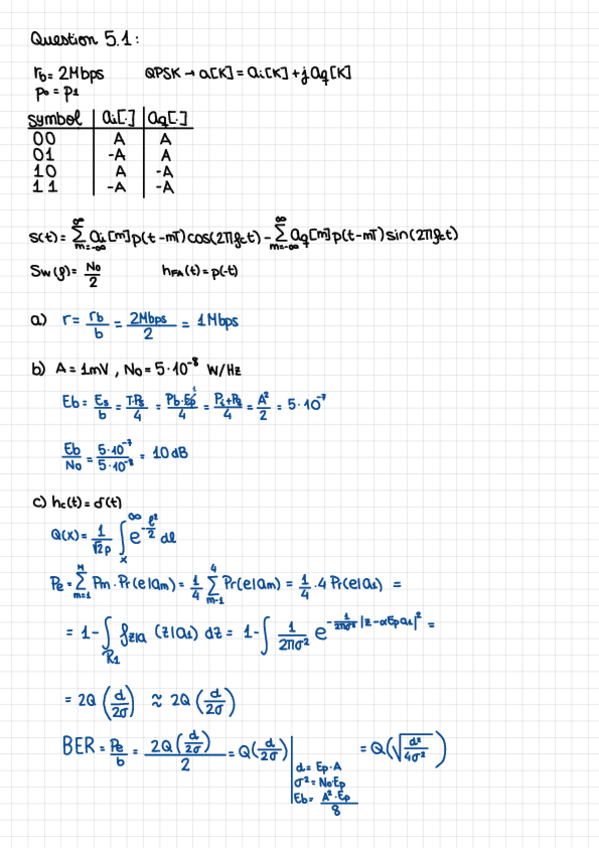 Question 5.1:
rb = 2Mbps QPSK → a[K] = ai[K] + j aq[K]
p0 = p1
symbol | ai[.] | aq[.]
00 | A | A
01 | -A | A
10 | A | -A
11 | -A | -A
s(t) = ∑_{m=-∞}^{∞} ai[m]p(t-mT)cos(2πfct) - ∑_{m=-∞}^{∞} aq[m]p(t-mT)sin(2πfct)
Sw(f) = No/2 hFA(t) = p(-t)
a) r = rb/b = 2Mbps/2 = 1Mbps
b) A = 1mV, No = 5·10^-8 W/Hz
Eb = Es/b = T·Ps/4 = Pb·Ep/4 = Ps+Ps/4 = A²/2 = 5·10^-7
Eb/No = 5·10^-7/5·10^-8 = 10 dB
c) hc(t) = d(t)
Q(x) = 1/√2p ∫_x^∞ e^{-ℓ²/2} dℓ
Pe = ∑_{m=1}^{M} Pm·Pr(e|am) = 1/4 ∑_{m-1}^{4} Pr(e|am) = 1/4·4 Pr(e|a1) =
= 1 - ∫_{R1} fz|a (z|a1) dz = 1 - ∫ 1/2πσ² e^{-1/2πσ² |z-αEpa1|²} =
= 2Q(d/2σ) ≈ 2Q(d/2σ)
BER = Pe/b = 2Q(d/2σ)/2 = Q(d/2σ)| = Q(√(d²/4σ²))
d = Ep·A
σ² = No·Ep
Eb = A²·Ep/8